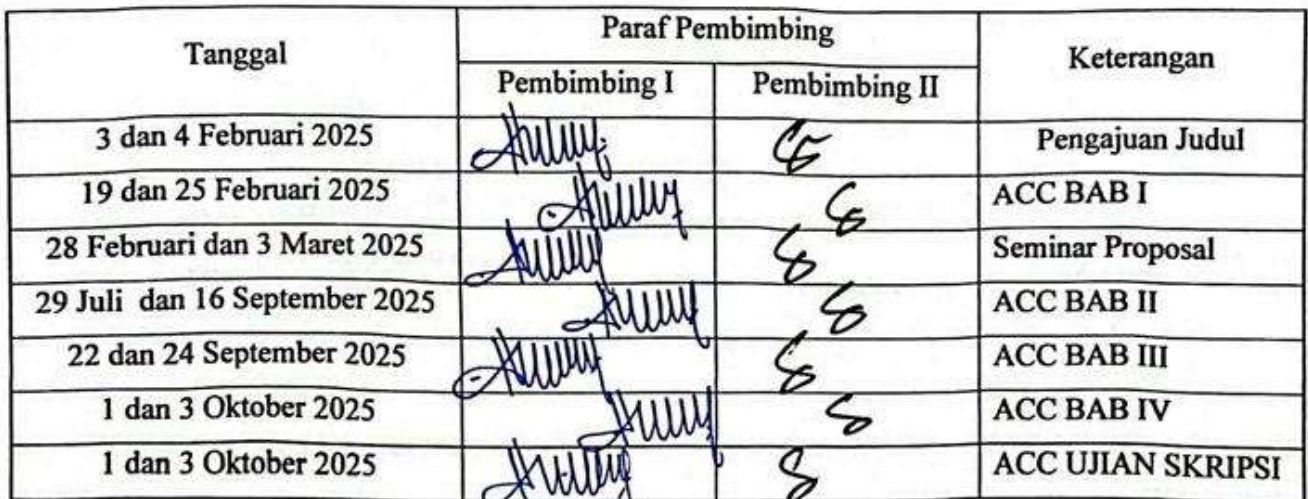 Tanggal Paraf Pembimbing Keterangan
Pembimbing I Pembimbing II
3 dan 4 Februari 2025 Pengajuan Judul
19 dan 25 Februari 2025 ACC BAB I
28 Februari dan 3 Maret 2025 Seminar Proposal
29 Juli dan 16 September 2025 ACC BAB II
22 dan 24 September 2025 ACC BAB III
1 dan 3 Oktober 2025 ACC BAB IV
1 dan 3 Oktober 2025 ACC UJIAN SKRIPSI